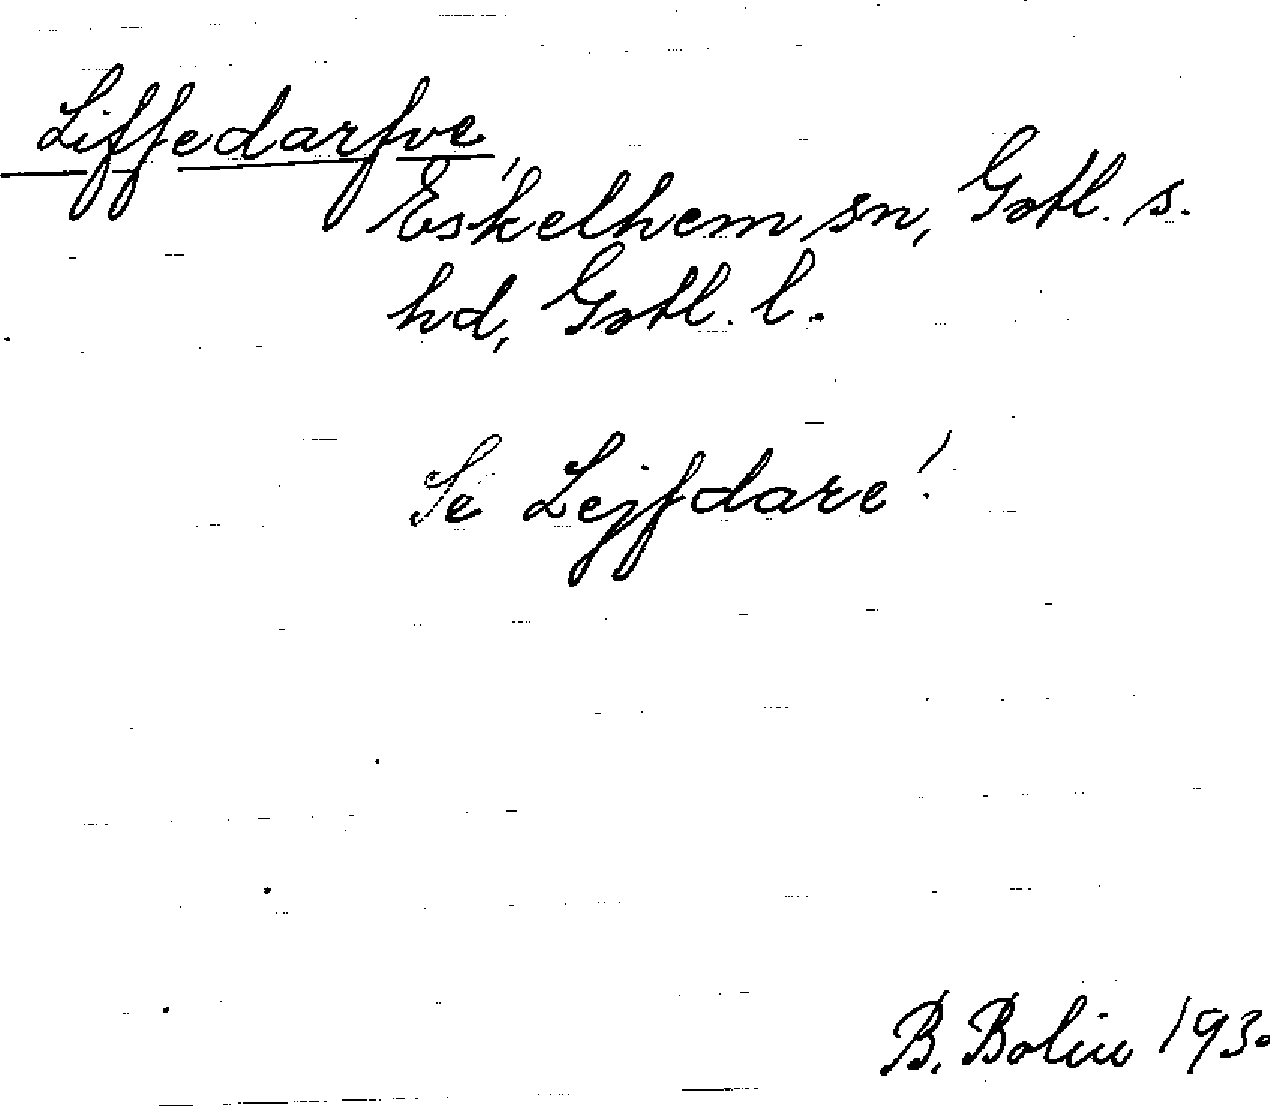 Liffedarfve,
Eskelhem sn, Gotl. s.
hd, Gotl. l.
Se Lejfdare!
B. Bolin 1930